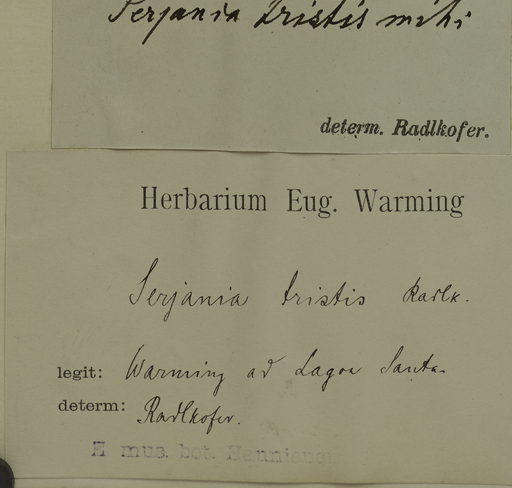 Serjania tristis mihi
determ. Radlkofer.
Herbarium Eug. Warming
Serjania tristis Radlk.
legit: Warming ad Lagoa Santa.
determ: Radlkofer.
E mus. bot. Hauniensi